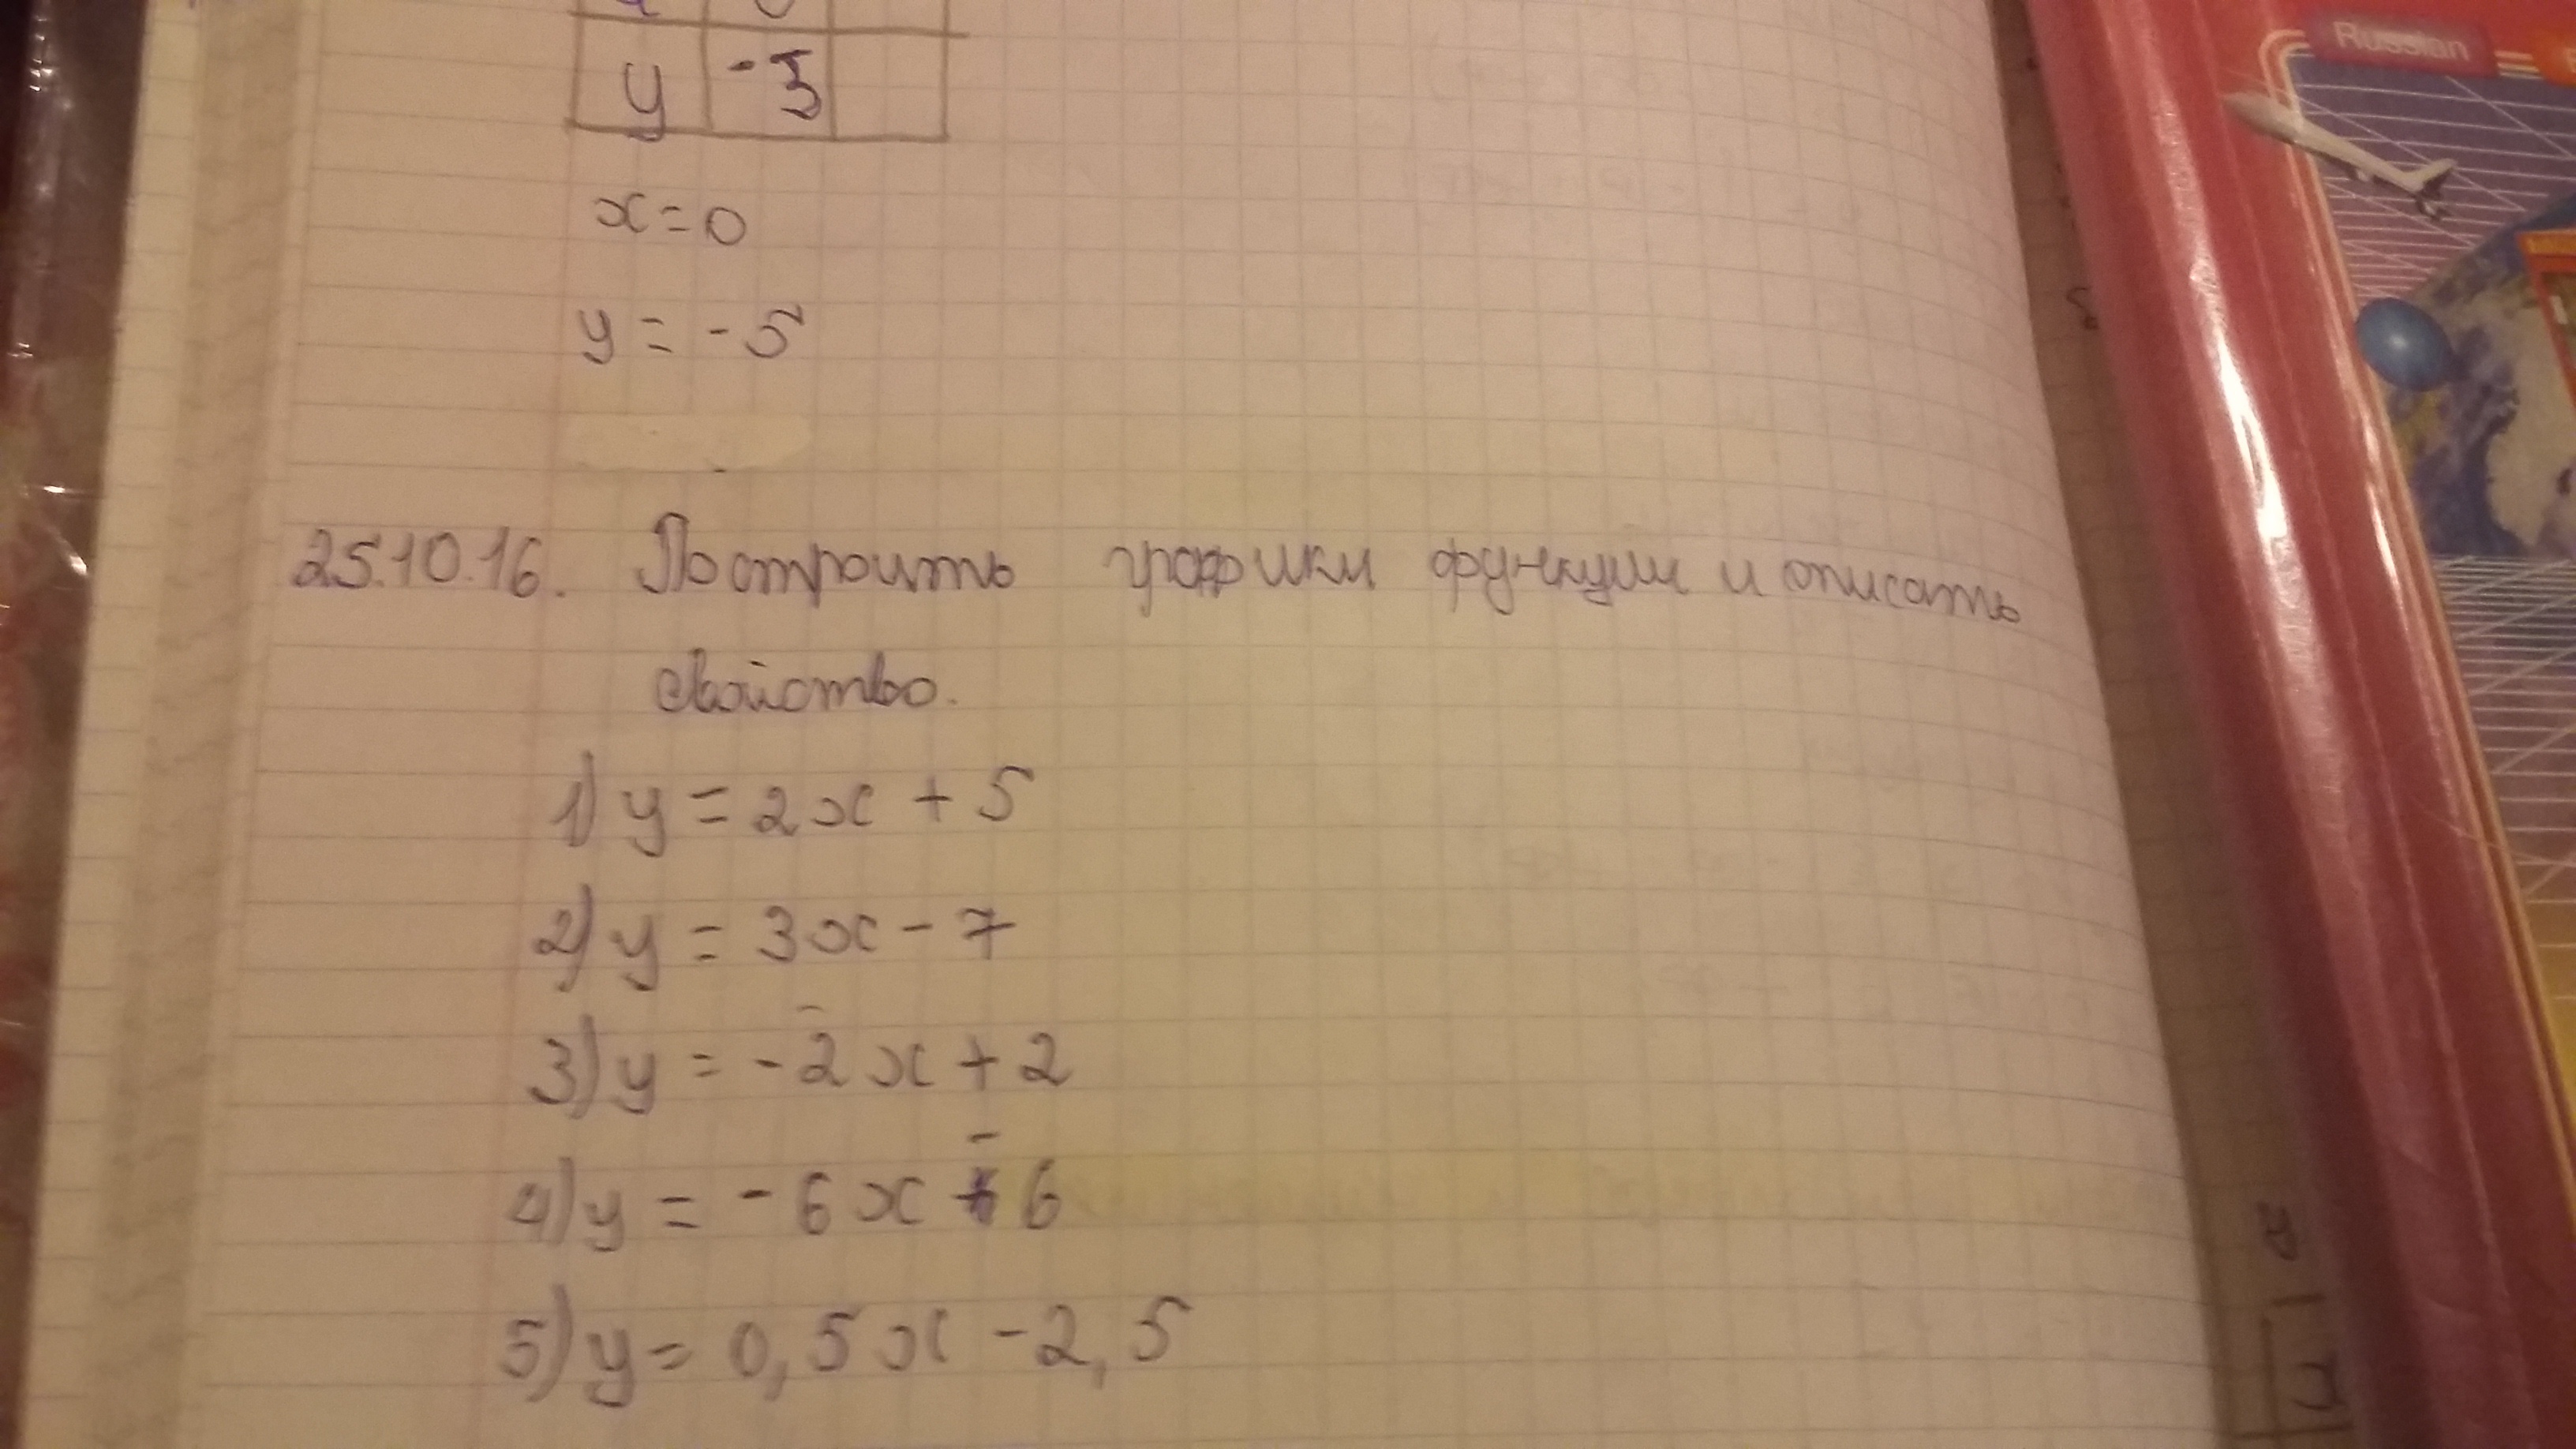 Russian
y -5
x=0
y = -5
25.10.16. Построить графики функции и описать
свойство.
1) y = 2x + 5
2) y = 3x - 7
3) y = -2x + 2
4) y = -6x - 6
5) y = 0,5x - 2,5